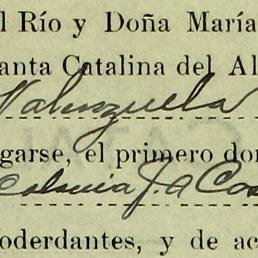 l Río y Doña María
anta Catalina del Al
Valenzuela
garse, el primero dor
Colonia J. A Cos
oderdantes, y de ac